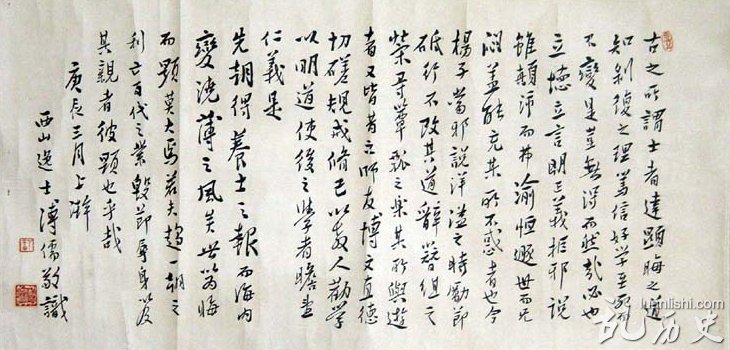 古之所謂士者達顯晦之道
知剥復之理篤信好学至死
不變是豈無得而然哉必也
立德立言明正義拒邪說
雖顛沛而弗渝恒遯世而无
悶蓋能充其所不惑者也今
楊子當邪說洋溢之時勵節
砥行不改其道辭簪组之
榮尋簞瓢之樂其所與遊
者又皆昔之師友博文直德
切磋規戒脩己以教人勸学
以明道使後之学者瞻
仁義是
先朝得養士之報而海内
變澆薄之風矣世篤晦
而顯莫大焉若夫趨一朝之
利亡百代之業毀節辱身以及
其親者彼顯也乎哉
庚辰三月上澣
西山逸士溥儒敬識
luanlishi.com
乱历史